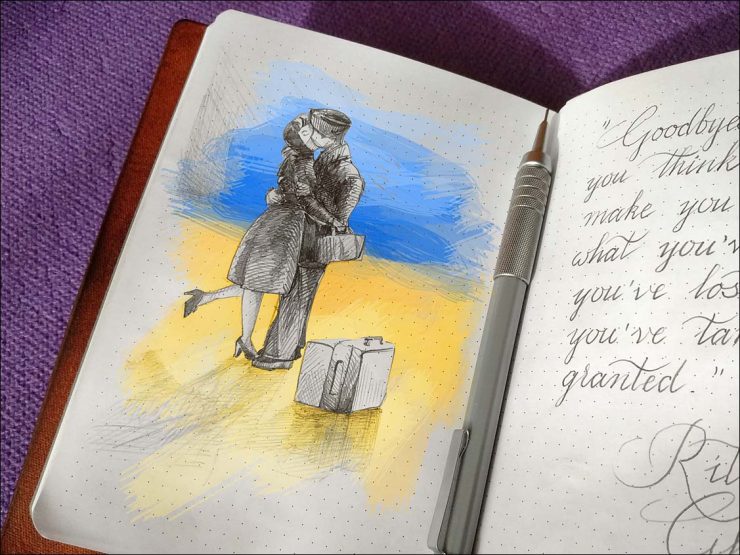 "Goodbye
you think
make you
what you'v
you've los
you've ta
granted."
Rit